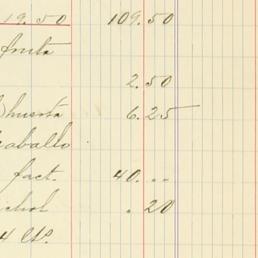 19.50 109.50
fruta
2.50
huerta 6.25
caballo
fact. 40...
.20
4 Cts.